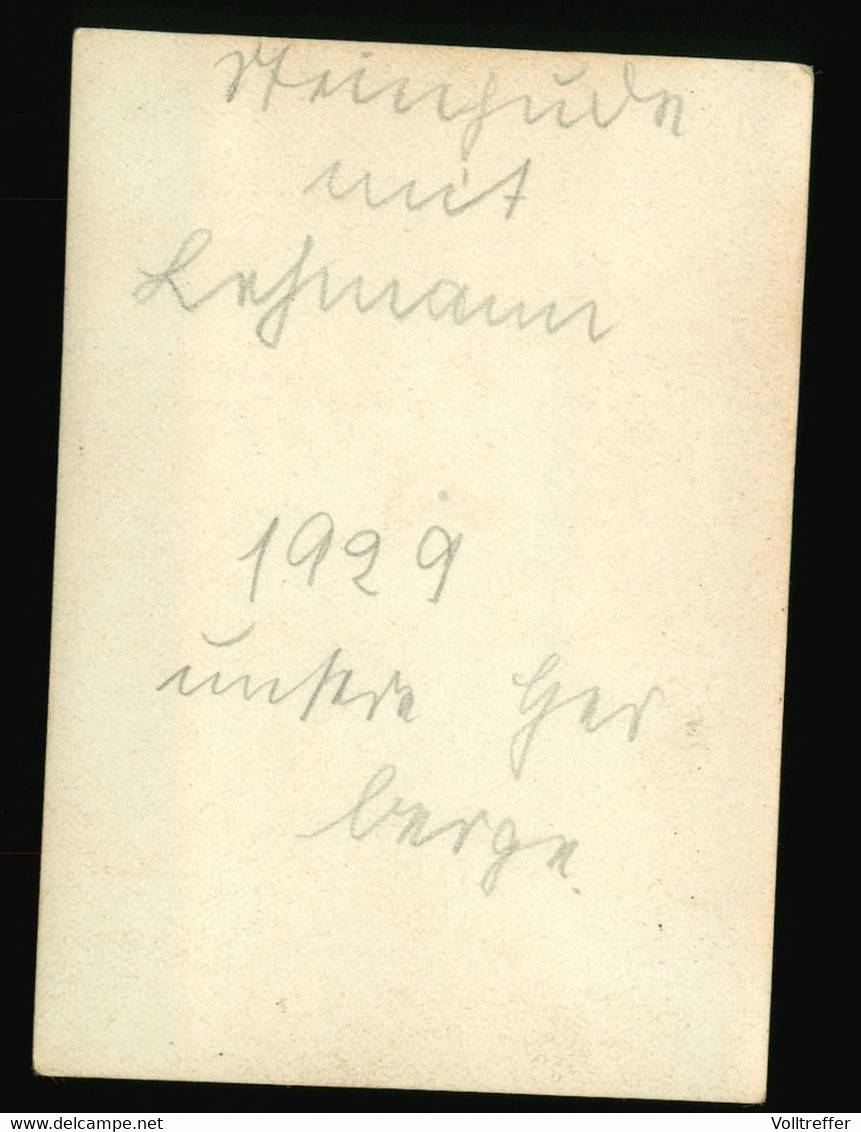 Steinhude
mit
Lehmann
1929
unsere Her-
berge.
www.delcampe.net
Volltreffer